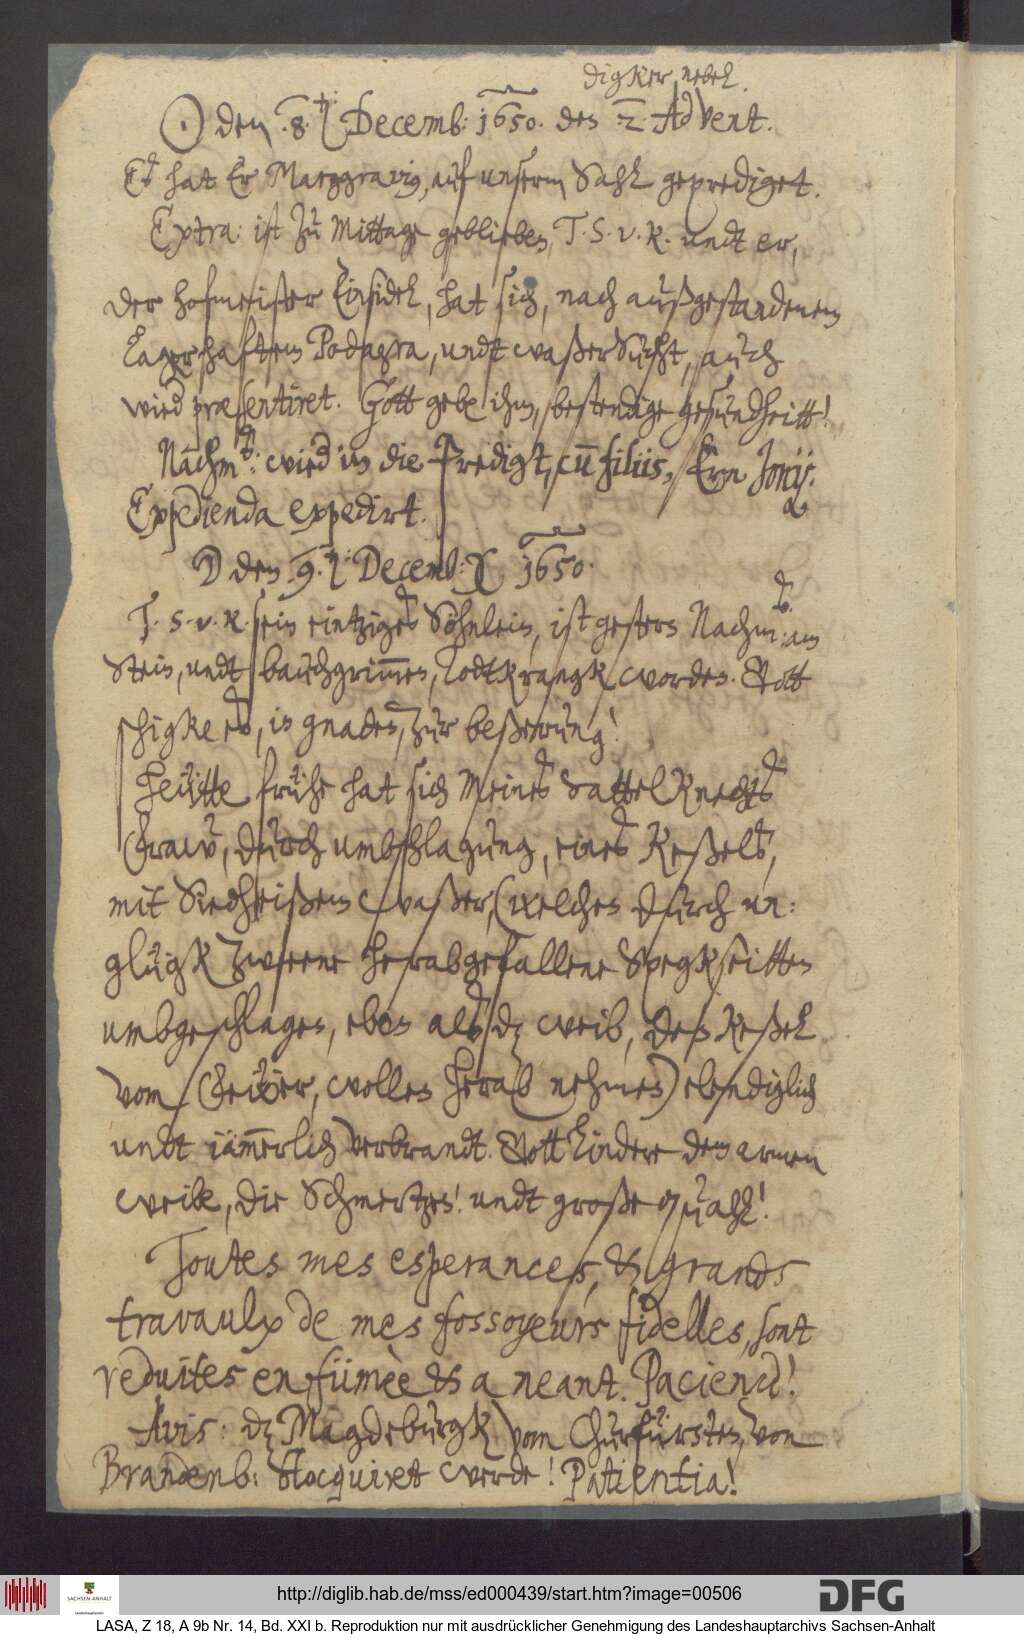 digker nebel.
☉ den .8. ten: Decemb: 1650. des 2. Advent.
Es hat Er Marggravius, auf unserm Sahl geprediget.
Extra: ist zu Mittage geblieben, T. S. v. K. undt er,
der hofmeister Einsidel, hat sich, nach außgestandenem
langerhaftem Podagra, undt waßersucht, auch
wied præsentiret. Gott gebe ihm, bestendige gesundheitt!
Nachms: wied in die Predigt, cũ filiis, Ern Jonij.
Expedienda expedirt.
☽ den .9. t: Decemb: X 1650.
T. S. v. K. sein eintziges Söhnlein, ist gestern Nachms: am
Stein, undt bauchgrim̄en, todtkrangk worden. Gott
schigke es, in gnaden, zur beßerung!
Heütte frühe hat sich meines SattelKnechts
Fraw, durch umbschlagung, eines Keßels,
mit Siedheißem waßer, (welchen durch un:
glügk zweene herabgefallene Spegkseitten
umbgeschlagen, eben als dz weib, den Keßel
vom Feüer, wollen herab nehmen) elendiglich
undt jäm̄erlich verbrandt. Gott lindere dem armen
weibe, die Schmertzen! undt große quahl!
Toutes mes esperances, & grands
travaulx de mes fossoyeurs fidelles, sont
reduites en fümèe & a neant. Pacienci!
Avis: dz Magdeburgk vom Churfürsten, von
Brandenb: blocquiret werde! Patientia!
http://diglib.hab.de/mss/ed000439/start.htm?image=00506
SACHSEN-ANHALT
Landeshauptarchiv
DFG
LASA, Z 18, A 9b Nr. 14, Bd. XXI b. Reproduktion nur mit ausdrücklicher Genehmigung des Landeshauptarchivs Sachsen-Anhalt